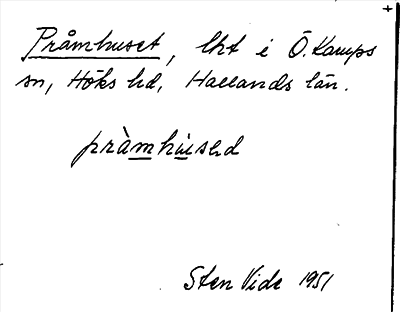 Pråmhuset, lht i Ö. Karups
sn, Höks hd, Hallands län.
pràmhùsəd
Sten Vide 1951